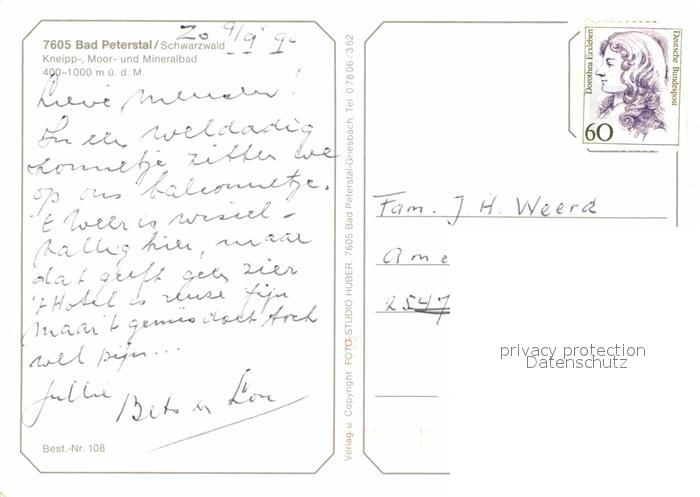 Zo 9/9 90
7605 Bad Peterstal/Schwarzwald
Kneipp-, Moor- und Mineralbad
400–1000 m ü. d. M.
Lieve mensen!
In een weldadig
zonnetje zitten we
op ons balconnetje.
't Weer is wissel-
vallig hier, maar
dat geeft geen zier
't Hotel is reuze fijn
maar 't gemis doet toch
wel pijn...
Jullie
Bets en Lou
Best.-Nr. 108
Verlag u. Copyright FOTO-STUDIO HUBER, 7605 Bad Peterstal-Griesbach, Tel. 0 78 06-3 52
Dorothea Erxleben
Deutsche Bundespost
60
Fam. J. H. Weerd
Ame
2547
privacy protection
Datenschutz